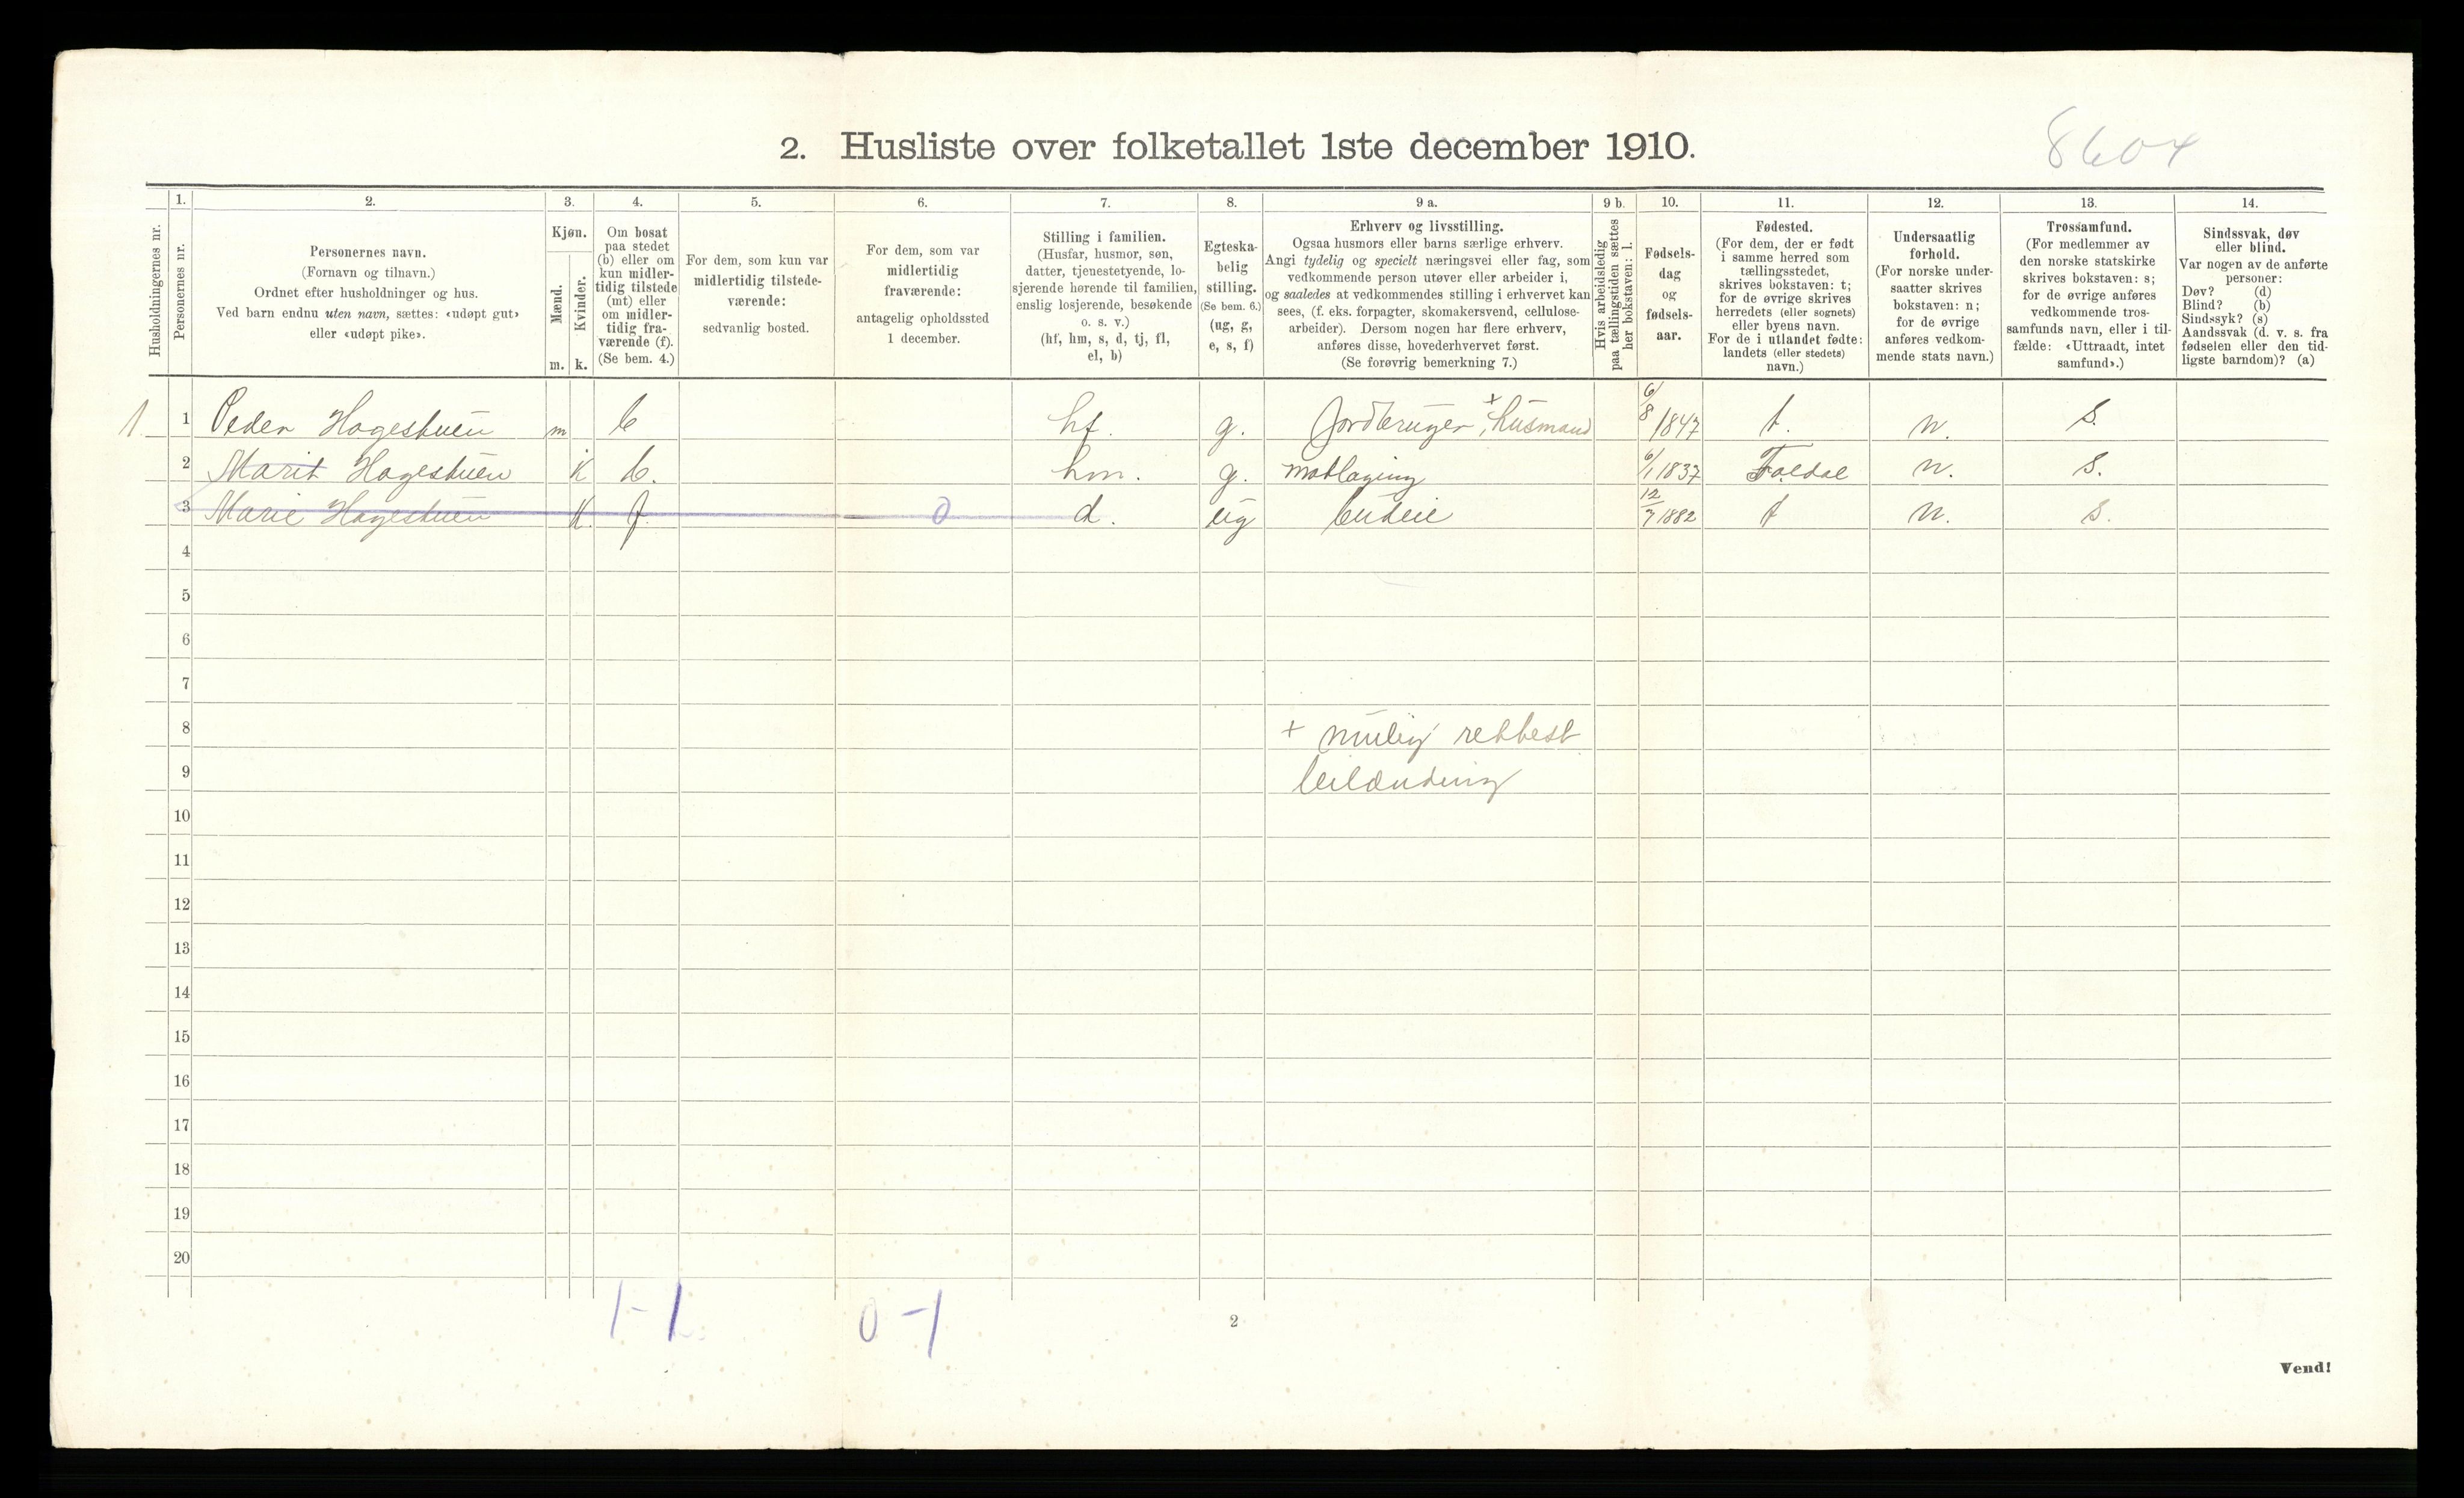 2. Husliste over folketallet 1ste december 1910.
8604
Husholdningernes nr.
1.
Personernes nr.
2.
Personernes navn.
(Fornavn og tilnavn.)
Ordnet efter husholdninger og hus.
Ved barn endnu uten navn, sættes: «udøpt gut»
eller «udøpt pike».
3.
Kjøn.
Mænd.
Kvinder.
m. k.
4.
Om bosat
paa stedet
(b) eller om
kun midler-
tidig tilstede
(mt) eller
om midler-
tidig fra-
værende (f).
(Se bem. 4.)
5.
For dem, som kun var
midlertidig tilstede-
værende:
sedvanlig bosted.
6.
For dem, som var
midlertidig
fraværende:
antagelig opholdssted
1 december.
7.
Stilling i familien.
(Husfar, husmor, søn,
datter, tjenestetyende, lo-
sjerende hørende til familien,
enslig losjerende, besøkende
o. s. v.)
(hf, hm, s, d, tj, fl,
el, b)
8.
Egteska-
belig
stilling.
(Se bem. 6.)
(ug, g,
e, s, f)
9 a.
Erhverv og livsstilling.
Ogsaa husmors eller barns særlige erhverv.
Angi tydelig og specielt næringsvei eller fag, som
vedkommende person utøver eller arbeider i,
og saaledes at vedkommendes stilling i erhvervet kan
sees, (f. eks. forpagter, skomakersvend, cellulose-
arbeider). Dersom nogen har flere erhverv,
anføres disse, hovederhvervet først.
(Se forøvrig bemerkning 7.)
9 b.
Hvis arbeidsledig
paa tællingstiden sættes
her bokstaven: l.
10.
Fødsels-
dag
og
fødsels-
aar.
11.
Fødested.
(For dem, der er født
i samme herred som
tællingsstedet,
skrives bokstaven: t;
for de øvrige skrives
herredets (eller sognets)
eller byens navn.
For de i utlandet fødte:
landets (eller stedets)
navn.)
12.
Undersaatlig
forhold.
(For norske under-
saatter skrives
bokstaven: n;
for de øvrige
anføres vedkom-
mende stats navn.)
13.
Trossamfund.
(For medlemmer av
den norske statskirke
skrives bokstaven: s;
for de øvrige anføres
vedkommende tros-
samfunds navn, eller i til-
fælde: «Uttraadt, intet
samfund».)
14.
Sindssvak, døv
eller blind.
Var nogen av de anførte
personer:
Døv? (d)
Blind? (b)
Sindssyk? (s)
Aandssvak (d. v. s. fra
fødselen eller den tid-
ligste barndom)? (a)
1. 1 Peder Hagestuen m b hf. g. Jordbruger, + husmand 6/8 1847 t. n. s.
2 Marit Hagestuen k b. hm. g. matlaging 6/1 1837 Foldal n. s.
3 Marie Hagestuen k. f. 0 d. ug budeie 12/7 1882 t n. s.
4
5
6
7
8 + mulig rettest
9 leilænding
10
11
12
13
14
15
16
17
18
19
20
1-1 0-1
2
Vend!